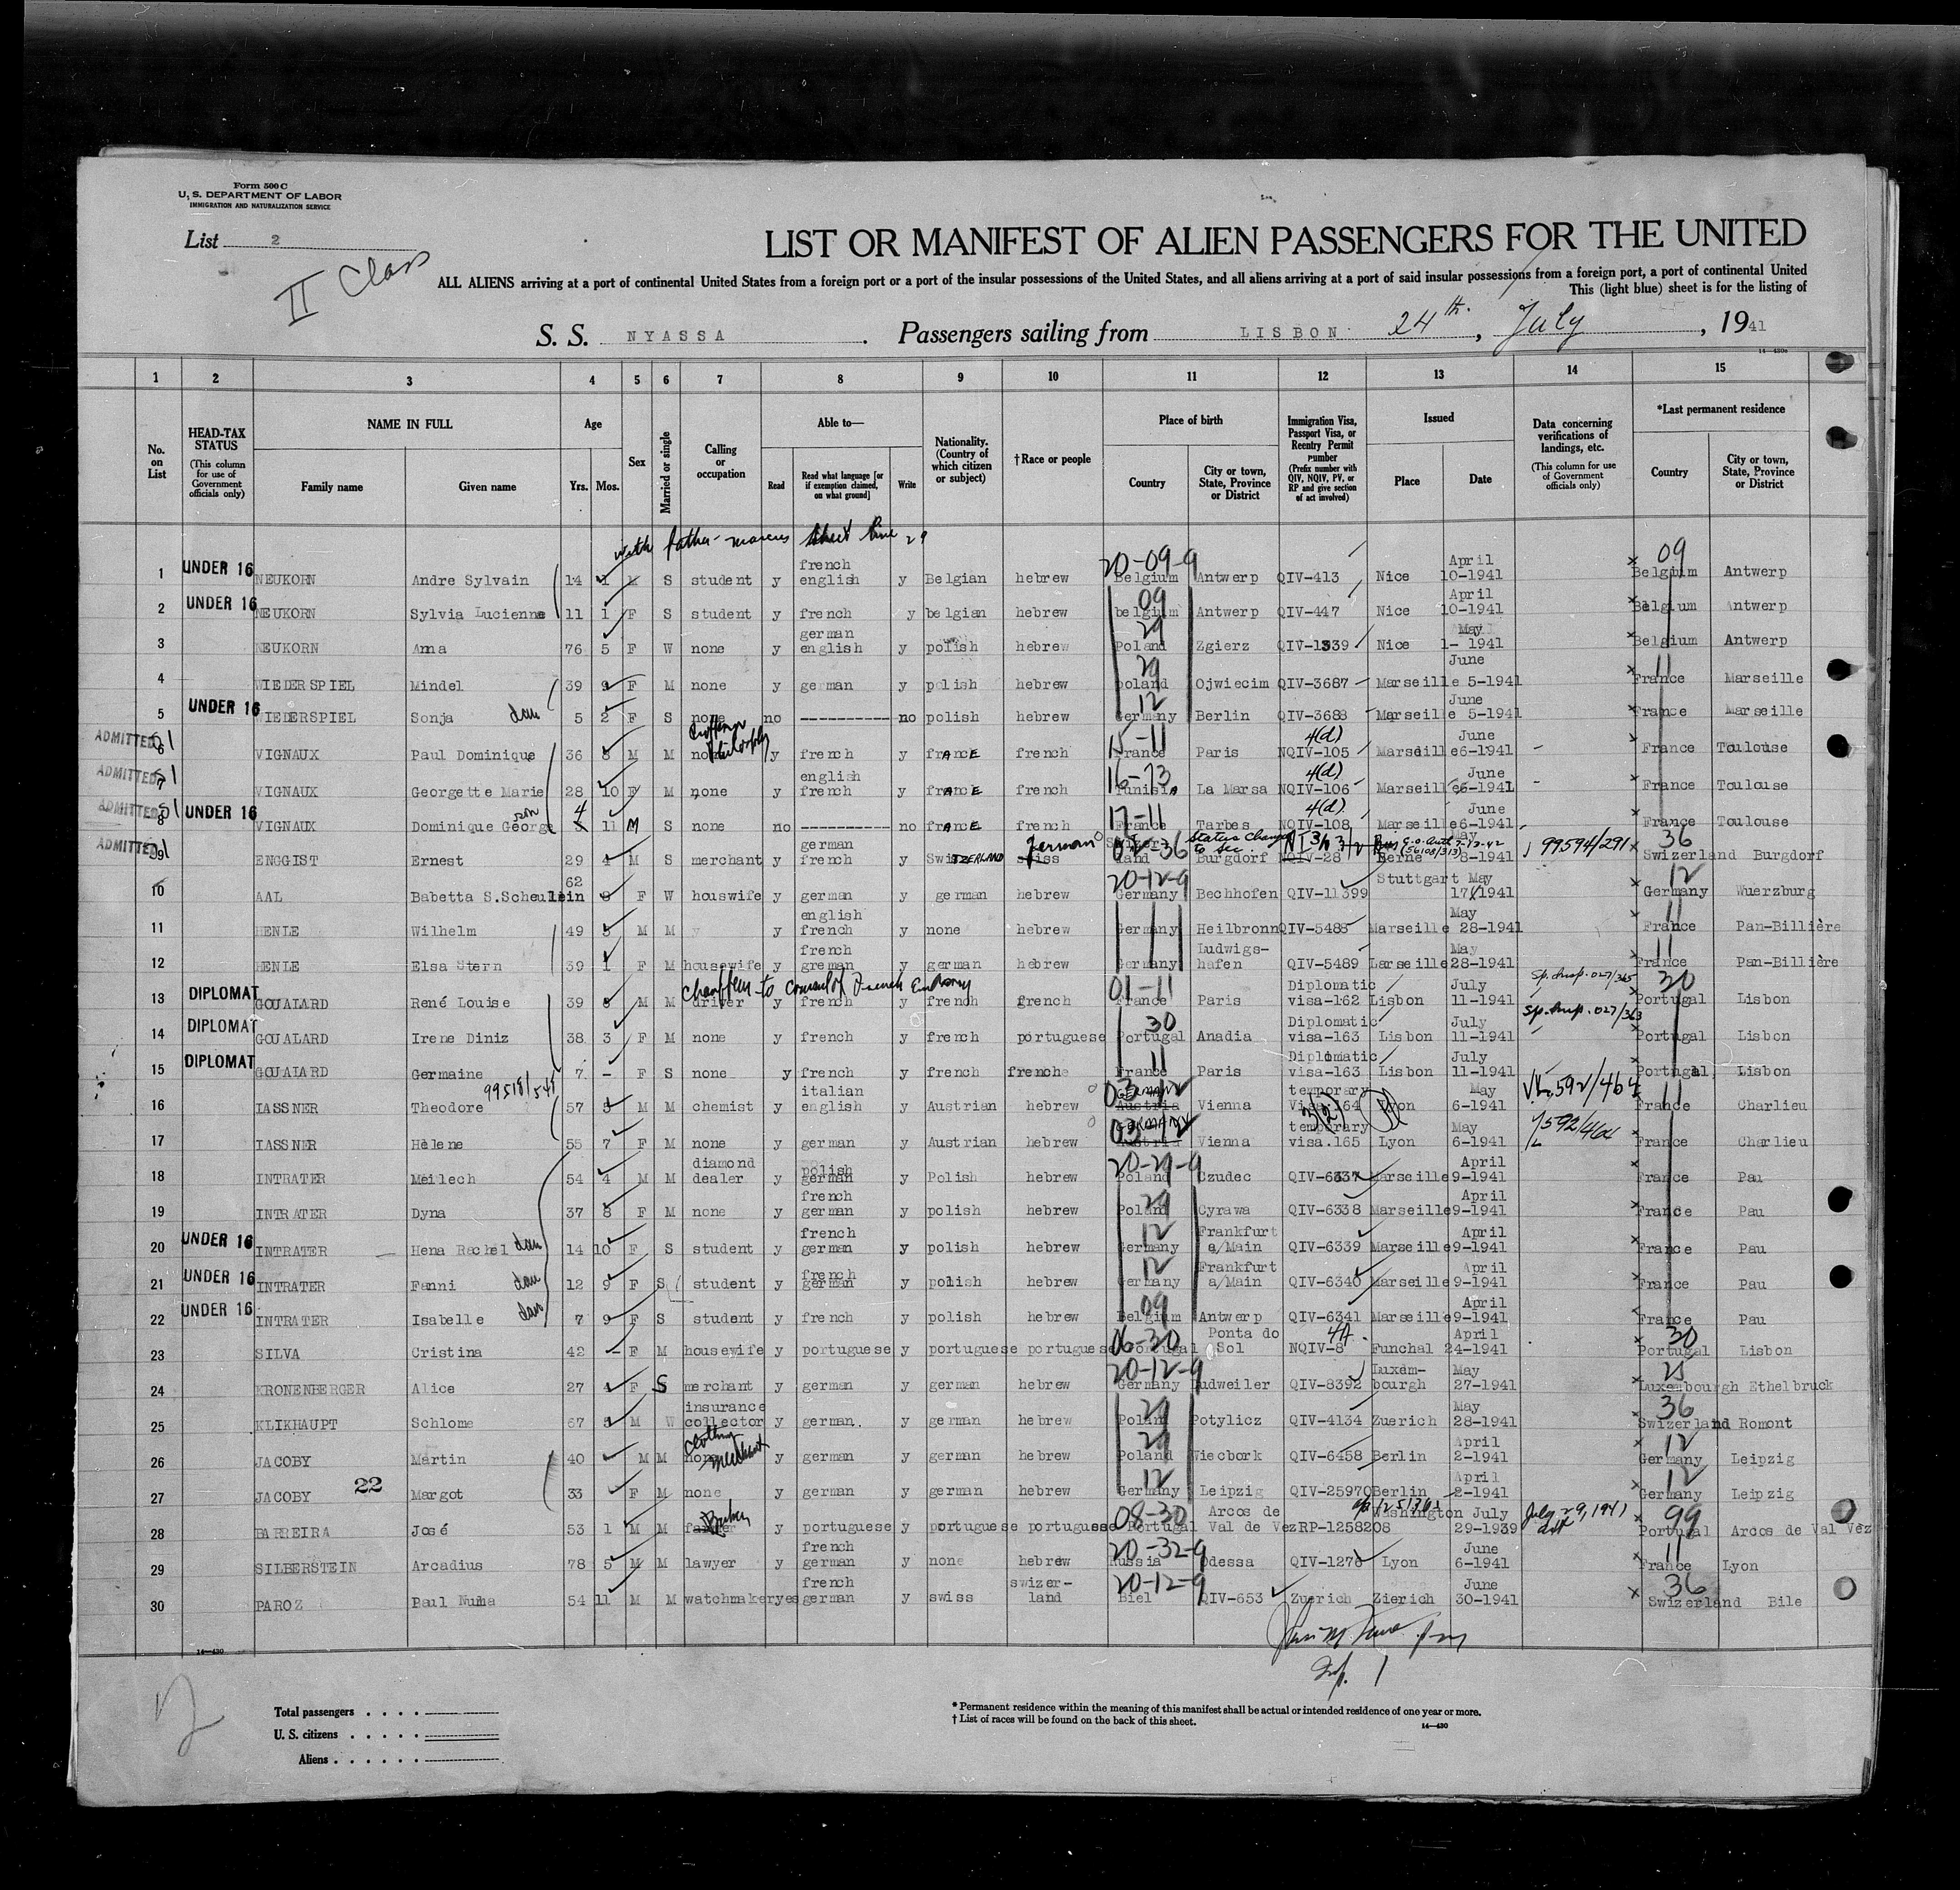 Form 500 C
U. S. DEPARTMENT OF LABOR
IMMIGRATION AND NATURALIZATION SERVICE
List 2
II Class
LIST OR MANIFEST OF ALIEN PASSENGERS FOR THE UNITED
ALL ALIENS arriving at a port of continental United States from a foreign port or a port of the insular possessions of the United States, and all aliens arriving at a port of said insular possessions from a foreign port, a port of continental United
This (light blue) sheet is for the listing of
S. S. NYASSA. Passengers sailing from LISBON 24th., July, 1941
14—430a
1 2 3 4 5 6 7 8 9 10 11 12 13 14 15
No. on List
HEAD-TAX STATUS (This column for use of Government officials only)
NAME IN FULL Family name Given name
Age Yrs. Mos.
Sex
Married or single
Calling or occupation
Able to— Read Read what language [or if exemption claimed, on what ground] Write
Nationality. (Country of which citizen or subject)
†Race or people
Place of birth Country City or town, State, Province or District
Immigration Visa, Passport Visa, or Reentry Permit number (Prefix number with QIV, NQIV, PV, or RP and give section of act involved)
Issued Place Date
Data concerning verifications of landings, etc. (This column for use of Government officials only)
*Last permanent residence Country City or town, State, Province or District
with father - marcus sheet line 29
1 UNDER 16 NEUKORN Andre Sylvain 14 1 M S student y french english y Belgian hebrew 20-09-9 Belgium Antwerp QIV-413 Nice April 10-1941 09 Belgium Antwerp
2 UNDER 16 NEUKORN Sylvia Lucienne 11 1 F S student y french y belgian hebrew 09 belgium Antwerp QIV-447 Nice April 10-1941 Belgium Antwerp
3 NEUKORN Anna 76 5 F W none y german english y polish hebrew 29 Poland Zgierz QIV-1339 Nice May 1-1941 Belgium Antwerp
4 WIEDERSPIEL Mindel 39 9 F M none y german y polish hebrew 29 poland Ojwiecim QIV-3687 Marseille June 5-1941 11 France Marseille
5 UNDER 16 WIEDERSPIEL Sonja dau 5 2 F S none no ---------- no polish hebrew 12 Germany Berlin QIV-3688 Marseille June 5-1941 France Marseille
6 ADMITTED VIGNAUX Paul Dominique 36 8 M M none Philosophy y french y frANCE french 15-11 France Paris 4(d) NQIV-105 Marseille June 6-1941 France Toulouse
7 ADMITTED VIGNAUX Georgette Marie 28 10 F M none y english french y frANCE french 16-73 Tunisia La Marsa 4(d) NQIV-106 Marseille June 6-1941 France Toulouse
8 ADMITTED UNDER 16 VIGNAUX Dominique George son 4 11 M S none no ---------- no frANCE french 17-11 France Tarbes 4(d) NQIV-108 Marseille June 6-1941 France Toulouse
9 ADMITTED ENGGIST Ernest 29 4 M S merchant y german french y SwiTZERLAND swiss german 02-36 Burgdorf Status Change to Sec. QIV-28 Berne May 8-1941 99594/291 36 Swizerland Burgdorf
10 AAL Babetta S.Scheulein 62 8 F W houswife y german y german hebrew 20-12-9 Germany Bechhofen QIV-11399 Stuttgart May 17-1941 12 Germany Wuerzburg
11 HENLE Wilhelm 49 5 M M y english french y none hebrew Germany Heilbronn QIV-5485 Marseille May 28-1941 11 France Pan-Billière
12 HENLE Elsa Stern 39 1 F M housewife y french greman y german hebrew Germany Ludwigs-hafen QIV-5489 Larseille May 28-1941 11 France Pan-Billière
13 DIPLOMAT GOUALARD René Louise 39 8 M M driver Chauffeur to Consul of French Embassy y french y french grench 01-11 France Paris Diplomatic visa-162 Lisbon July 11-1941 Sp. Insp. 027/365 30 Portugal Lisbon
14 DIPLOMAT GOUALARD Irene Diniz 38 3 F M none y french y french portuguese 30 Portugal Anadia Diplomatic visa-163 Lisbon July 11-1941 Sp. Insp. 027/363 Portugal Lisbon
15 DIPLOMAT GOUALARD Germaine 7 - F S none y french y french french 11 France Paris Diplomatic visa-163 Lisbon July 11-1941 Portugal Lisbon
16 LASSNER Theodore 99518/548 57 5 M M chemist y italian english y Austrian hebrew 03-12 GERMANY Austria Vienna temporary Visa.164 Lyon May 6-1941 11 France Charlieu
17 LASSNER Hélene 55 7 F M none y german y Austrian hebrew GERMANY Austria Vienna temporary visa.165 Lyon May 6-1941 France Charlieu
18 INTRATER Meilech 54 4 M M diamond dealer y polish german y Polish hebrew 20-29-9 Poland Czudec QIV-6337 Marseille April 9-1941 France Pau
19 INTRATER Dyna 37 8 F M none y french german y polish hebrew 29 Poland Cyrawa QIV-6338 Marseille April 9-1941 France Pau
20 UNDER 16 INTRATER Hena Rachel dau 14 10 F S student y french german y polish hebrew 12 Germany Frankfurt a/Main QIV-6339 Marseille April 9-1941 France Pau
21 UNDER 16 INTRATER Fanni dau 12 9 F S student y french german y polish hebrew 12 Germany Frankfurt a/Main QIV-6340 Marseille April 9-1941 France Pau
22 UNDER 16 INTRATER Isabelle dau 7 9 F S student y french y polish hebrew 09 Belgium Antwerp QIV-6341 Marseille April 9-1941 France Pau
23 SILVA Cristina 42 - F M housewife y portuguese y portuguese portuguese 06-30 Portugal Ponta do Sol NQIV-8 Funchal April 24-1941 30 Portugal Lisbon
24 KRONENBERGER Alice 27 4 F S merchant y german y german hebrew 20-12-9 Germany Ludweiler QIV-8392 Luxem-bourgh May 27-1941 25 Luxembourgh Ethelbruck
25 KLIKHAUPT Schlome 67 8 M W insurance collector y german. y german hebrew 29 Poland Potylicz QIV-4134 Zuerich May 28-1941 36 Swizerland Romont
26 JACOBY Martin 40 M M none clothing merchant y german y german hebrew 29 Poland Wiecbork QIV-6458 Berlin April 2-1941 12 Germany Leipzig
27 JACOBY 22 Margot 33 F M none y german y german hebrew 12 Germany Leipzig QIV-25970 Berlin April 2-1941 12 Germany Leipzig
28 BARREIRA José 53 1 M M farmer y portuguese y portuguese portuguese 08-30 Portugal Arcos de Val de Vez RP-1258208 Washington July 29-1939 July 29, 1941 99 Portugal Arcos de Val Vez
29 SILBERSTEIN Arcadius 78 5 M M lawyer y french german y none hebrew 20-32-9 Russia Odessa QIV-1276 Lyon June 6-1941 11 France Lyon
30 PAROZ Paul Numa 54 11 M M watchmaker yes french german y swiss swizer-land 20-12-9 Biel QIV-653 Zuerich Zierich June 30-1941 36 Swizerland Bile
14—430
Total passengers
U. S. citizens
Aliens
* Permanent residence within the meaning of this manifest shall be actual or intended residence of one year or more.
† List of races will be found on the back of this sheet.
14—430